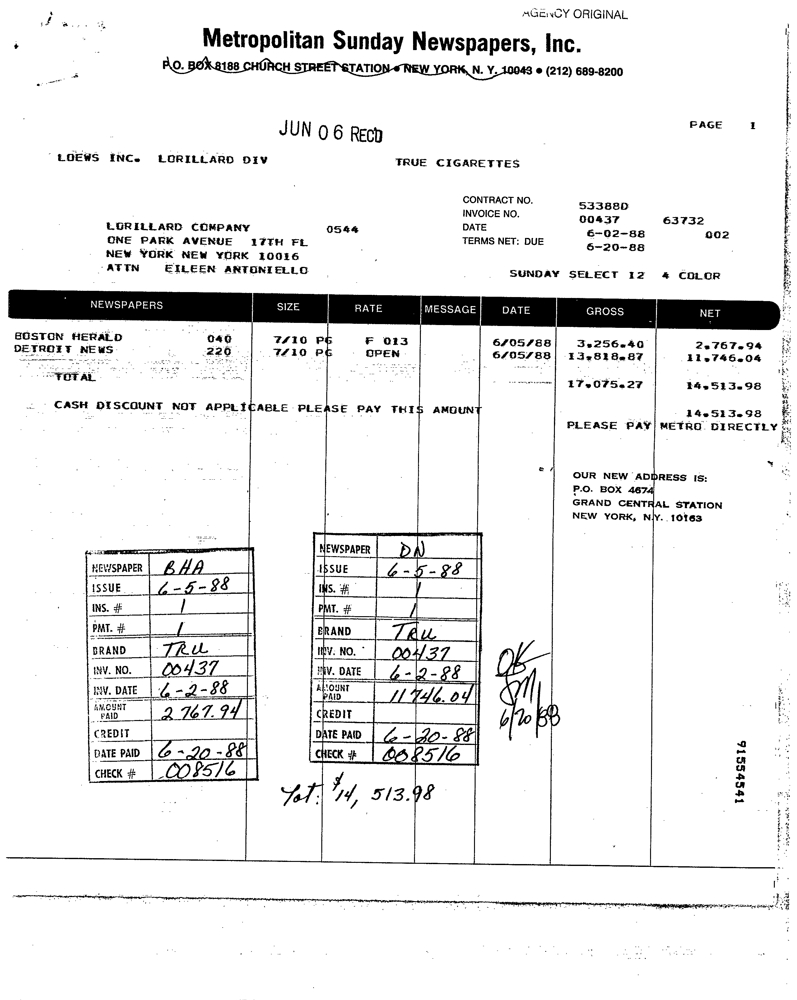 AGENCY ORIGINAL
Metropolitan Sunday Newspapers, Inc.
P.O. BOX 8188 CHURCH STREET STATION • NEW YORK, N. Y. 10043 • (212) 689-8200
JUN 06 RECD
PAGE 1
LOEWS INC. LORILLARD DIV TRUE CIGARETTES
CONTRACT NO. 53388D
INVOICE NO. 00437 63732
DATE 6-02-88 002
TERMS NET: DUE 6-20-88
LORILLARD COMPANY 0544
ONE PARK AVENUE 17TH FL
NEW YORK NEW YORK 10016
ATTN EILEEN ANTONIELLO
SUNDAY SELECT 12 4 COLOR
NEWSPAPERS SIZE RATE MESSAGE DATE GROSS NET
BOSTON HERALD 040 7/10 PG F 013 6/05/88 3,256.40 2,767.94
DETROIT NEWS 220 7/10 PG OPEN 6/05/88 13,818.87 11,746.04
TOTAL 17,075.27 14,513.98
CASH DISCOUNT NOT APPLICABLE PLEASE PAY THIS AMOUNT 14,513.98
PLEASE PAY METRO DIRECTLY
OUR NEW ADDRESS IS:
P.O. BOX 4674
GRAND CENTRAL STATION
NEW YORK, N.Y. 10163
NEWSPAPER BHA
ISSUE 6-5-88
INS. # 1
PMT. # 1
BRAND TRU
INV. NO. 00437
INV. DATE 6-2-88
AMOUNT PAID 2767.94
CREDIT
DATE PAID 6-20-88
CHECK # 008516
NEWSPAPER DN
ISSUE 6-5-88
INS. # 1
PMT. # 1
BRAND TRU
INV. NO. 00437
INV. DATE 6-2-88
AMOUNT PAID 11746.04
CREDIT
DATE PAID 6-20-88
CHECK # 008516
OK
6/20/88
Tot: $14,513.98
91554541